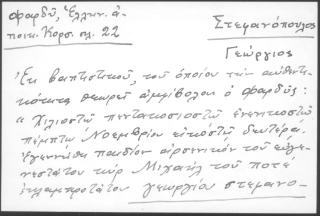 Φαρδῦ, Ἑλλην. ἀ-
ποικ. Κορσ. σλ. 22
Στεφανόπουλος
Γεώργιος
Ἐκ βαπτιστικοῦ, τοῦ ὁποίου τὴν αὐθεντι-
κότητα θεωρεῖ ἀμφίβολον ὁ Φαρδῦς:
"Χιλιοστῷ πεντακοσιοστῷ ἐνενηκοστῷ
πέμπτῳ Νοεμβρίου εἰκοστῇ δευτέρᾳ.
Ἐγεννήθη παιδίον ἀρσενικὸν τοῦ εὐγε-
νεστάτου κὺρ Μιχαὴλ τοῦ ποτέ
ἐκλαμπροτάτου Γεωργίου Στεφανο-